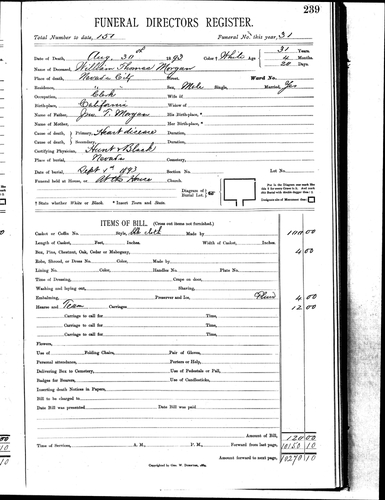 239
FUNERAL DIRECTORS REGISTER.
Total Number to date, 151 Funeral No. this year, 31
Date of Death, Aug. 30th 1893 Color White Age 31 Years. 4 Months. 20 Days.
Name of Deceased, William Thomas Morgan
Place of death, Nevada City Street. Ward No.
Residence, " " Sex, Male Single, Married, Yes
Occupation, Clerk Wife of
Birth-place, California Widow of
Name of Father, Jno. T. Morgan His Birth-place, *
Name of Mother, Her Birth-place, *
Cause of death, Primary, Heart disease
Cause of death, Secondary,
Certifying Physician, Hunt & Black
Place of burial, Nevada Cemetery,
Date of burial, Sept 1st 1893 Section No. Lot No.
Funeral held at House, or At the House Church.
Diagram of Burial Lot
† State whether White or Black. * Insert Town and State.
ITEMS OF BILL. (Cross out items not furnished.)
Casket or Coffin No. Style, 100 00
Length of Casket, Feet, Inches. Width of Casket, Inches.
Box, Pine, Chestnut, Oak, Cedar or Mahogany, 4 00
Robe, Shroud, or Dress No. Color, Made of
Lining No. Color, Handles No. Plate No.
Time of Dressing, Crape on door,
Washing and laying out, Shaving,
Embalming, Preserver and Ice, Fluid 4 00
Hearse and Team Carriages. 12 00
Carriage to call for Time,
Carriage to call for Time,
Carriage to call for Time,
Carriage to call for Time,
Flowers,
Use of Folding Chairs, Pair of Gloves,
Personal attendance, Porters or Help,
Delivering Box to Cemetery, Use of Pedestals or Pall,
Badges for Bearers, Use of Candlesticks,
Inserting death Notices in Papers,
Bill to be charged to
Date Bill was presented Date Bill was paid
Amount of Bill, 120 00
Time of Services, A. M., P. M., Forward from last page, 10150 10
Amount forward to next page, 10270 10